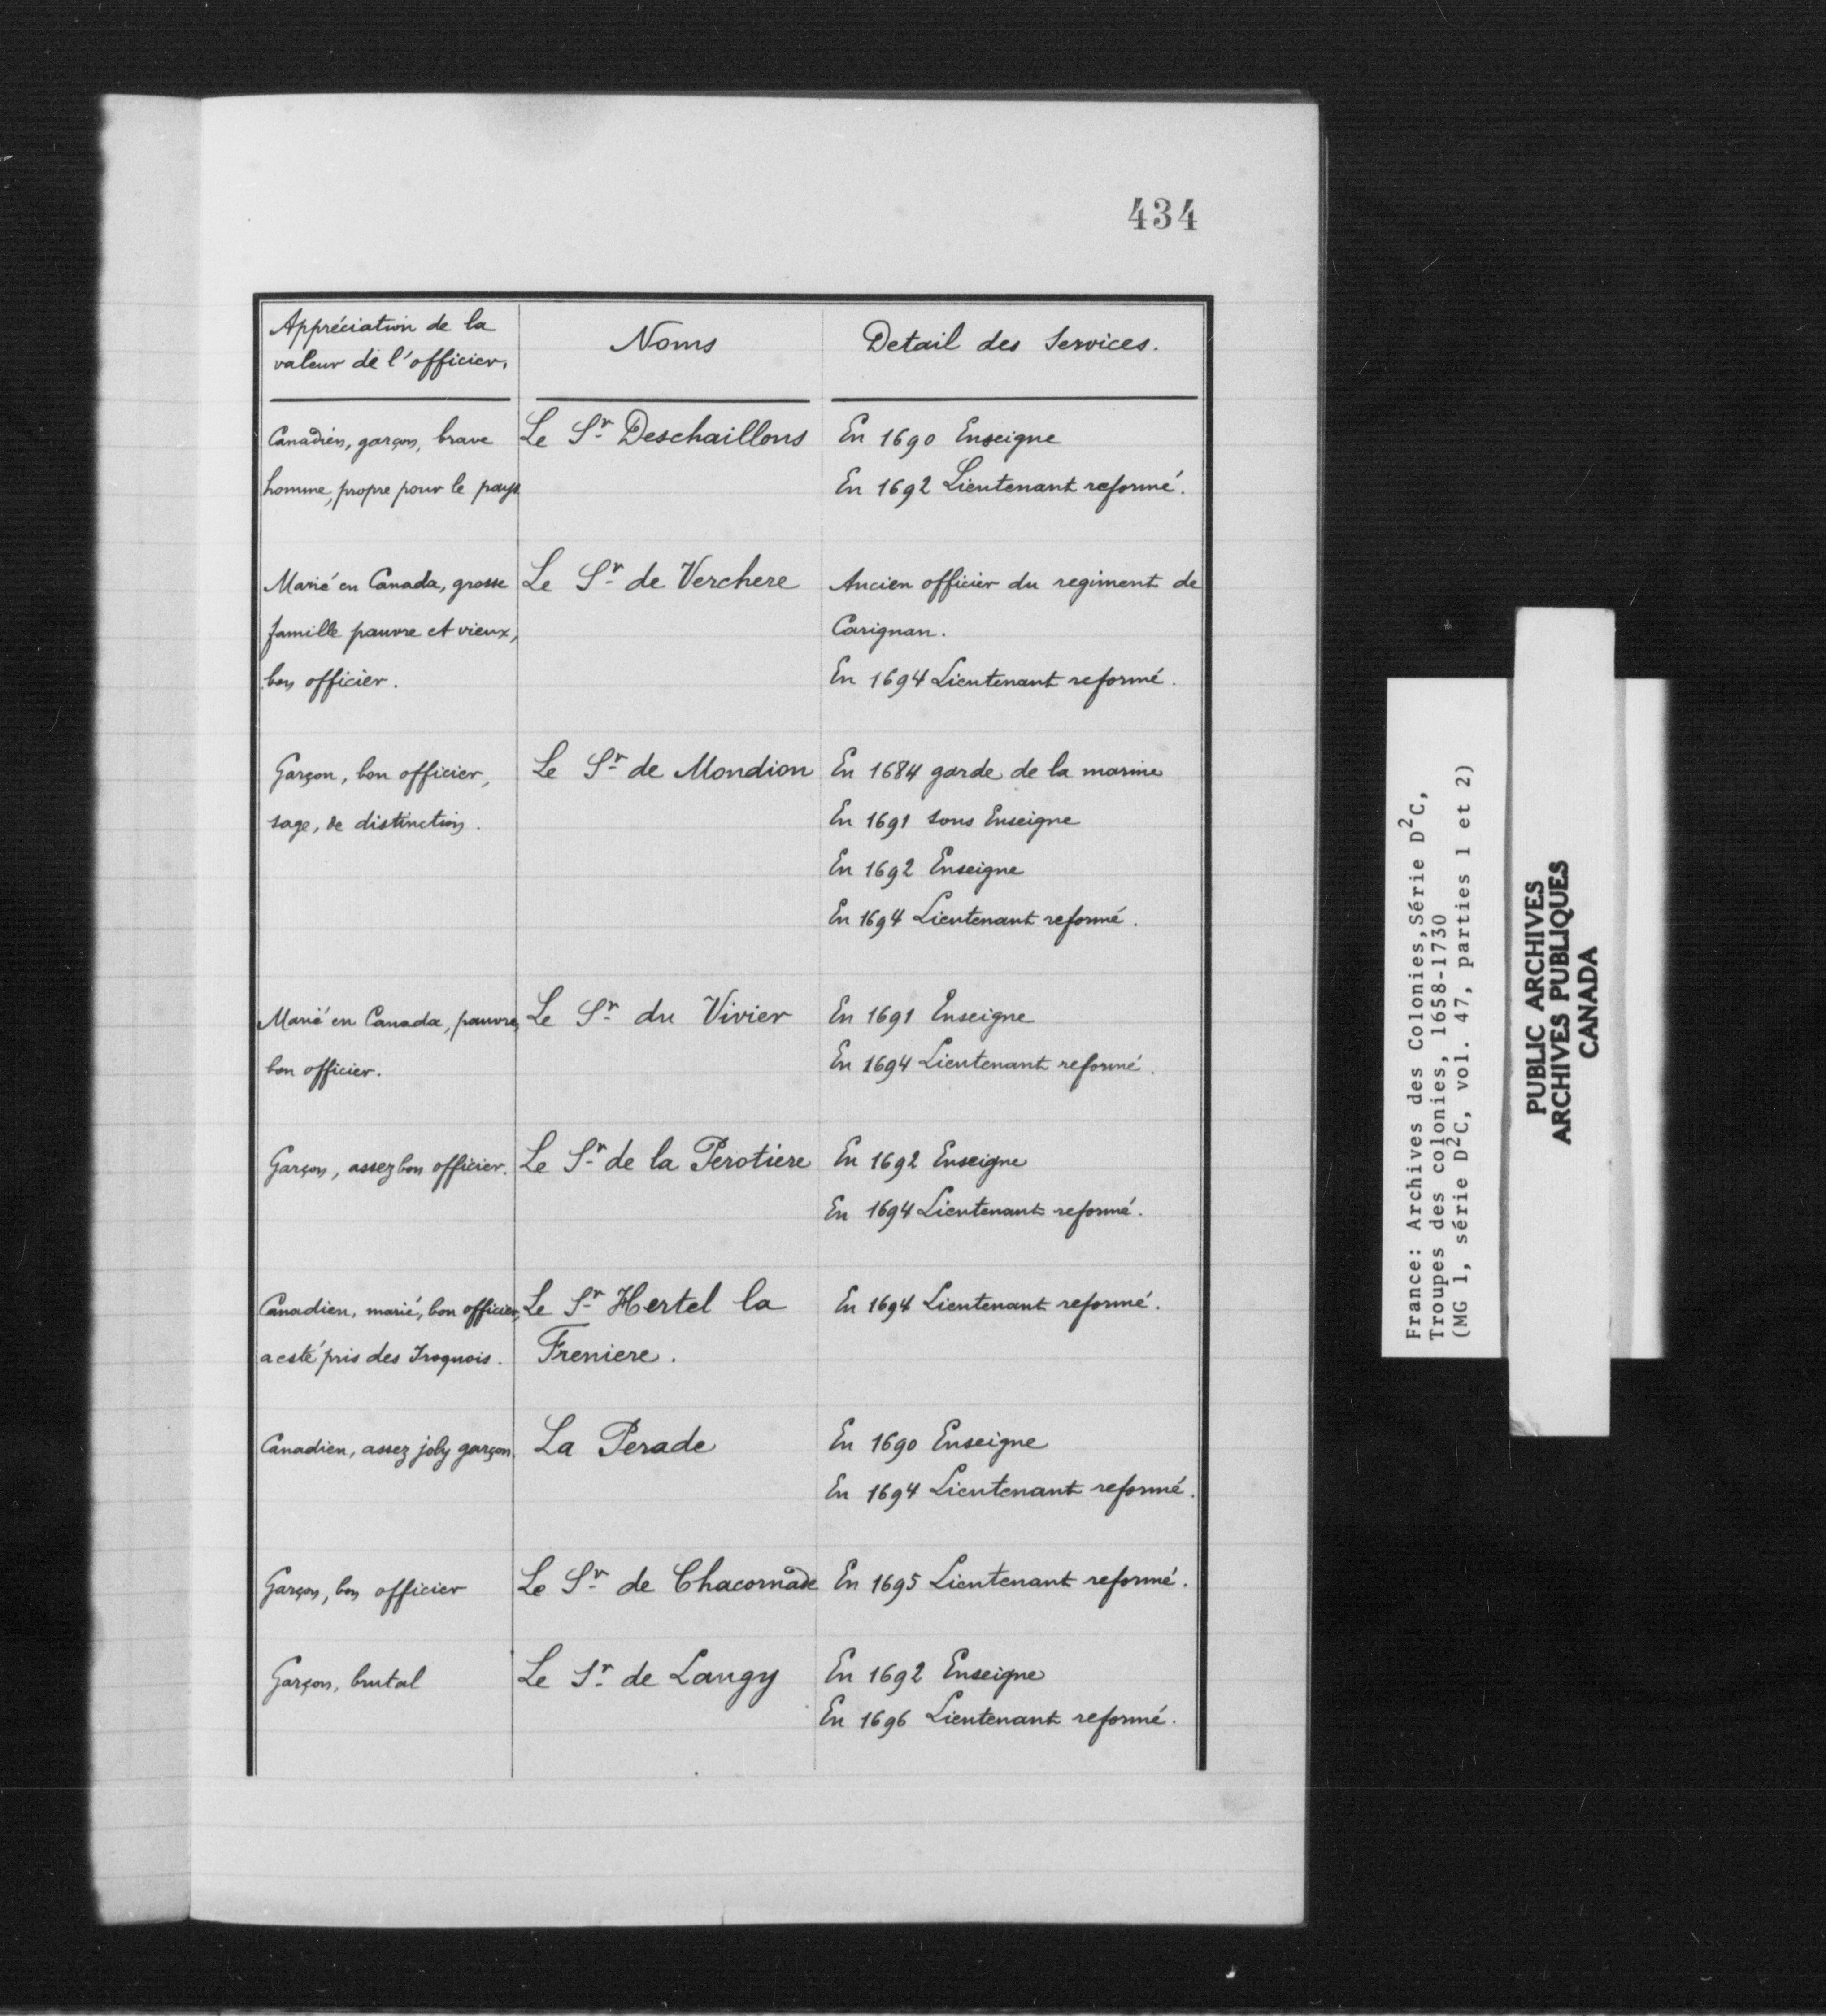 434
Appréciation de la
valeur de l'officier.
Noms
Detail des Services.
Canadien, garçon, brave
homme, propre pour le pays
Le Sr Deschaillons
En 1690 Enseigne
En 1692 Lieutenant reformé.
Marié en Canada, grosse
famille pauvre et vieux,
bon officier.
Le Sr de Verchere
Ancien officier du regiment de
Carignan.
En 1694 Lieutenant reformé.
Garçon, bon officier,
sage, de distinction.
Le Sr de Mondion
En 1684 garde de la marine
En 1691 sous Enseigne
En 1692 Enseigne
En 1694 Lieutenant reformé.
Marié en Canada, pauvre,
bon officier.
Le Sr du Vivier
En 1691 Enseigne
En 1694 Lieutenant reformé.
Garçon, assez bon officier.
Le Sr de la Perotiere
En 1692 Enseigne
En 1694 Lieutenant reformé.
Canadien, marié, bon officier,
a esté pris des Iroquois.
Le Sr Hertel la
Freniere.
En 1694 Lieutenant reformé.
Canadien, assez joly garçon.
La Perade
En 1690 Enseigne
En 1694 Lieutenant reformé.
Garçon, bon officier
Le Sr de Chacornade
En 1695 Lieutenant reformé.
Garçon, brutal
Le Sr de Langy
En 1692 Enseigne
En 1696 Lieutenant reformé.
France: Archives des Colonies, Série D2C,
Troupes des colonies, 1658-1730
(MG 1, série D2C, vol. 47, parties 1 et 2)
PUBLIC ARCHIVES
ARCHIVES PUBLIQUES
CANADA